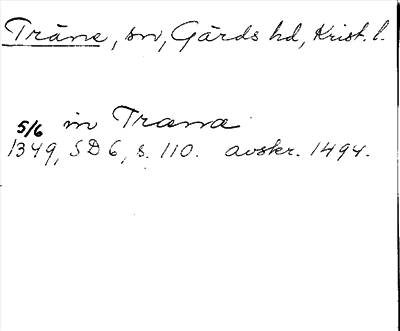 Träne, sn, Gärds hd, Krist. l.
5/6 in Trana
1349, SD 6, s. 110. avskr. 1494.